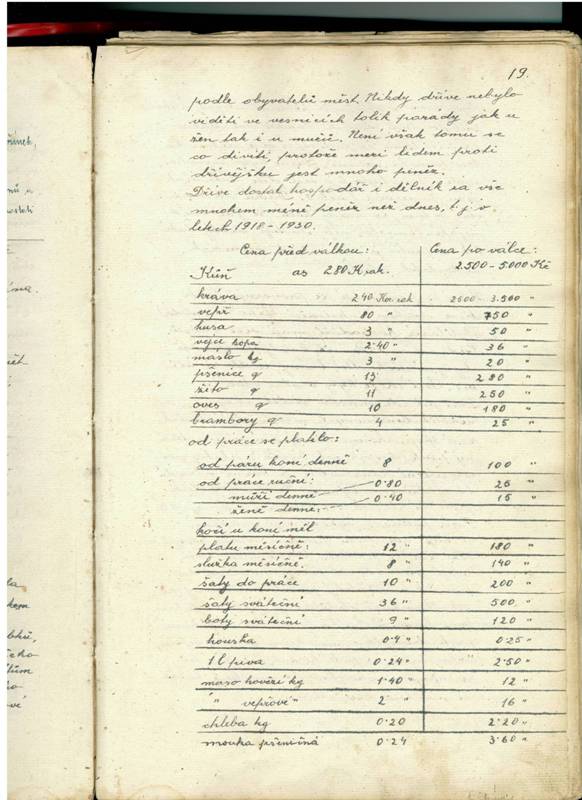 19.
podle obyvatelů měst. Nikdy dříve nebylo
viděti ve vesnicích tolik parády jak u
žen tak i u mužů. Není však tomu se
co diviti, protože mezi lidem proti
dřívějšku jest mnoho peněz.
Dříve dostal hospodář i dělník za vše
mnohem méně peněz než dnes, t.j. v
letech 1918 - 1930.
Cena před válkou: Cena po válce:
Kůň as 280 K rak. 2.500 - 5.000 Kč
kráva 240 Kor. rak 2000 - 3.500 "
vepř 80 " 750 "
husa 3 " 50 "
vejce kopa 2·40 " 36 "
máslo kg 3 " 20 "
pšenice q 13 280 "
žito q 11 250 "
oves q 10 180 "
brambory q 4 25 "
od práce se platilo:
od páru koní denně 8 100 "
od práce ruční: 0·80 25 "
muži denně 0·40 15 "
ženě denně:
kočí u koní měl
platu měsíčně: 12 " 180 "
služka měsíčně. 8 " 140 "
šaty do práce 10 " 200 "
šaty sváteční 36 " 500 "
boty sváteční 9 " 120 "
houska 0·4 " 0·25 "
1 l piva 0·24 " 2·50 "
maso hovězí kg 1·40 " 12 "
" vepřové " 2 " 16 "
chleba kg 0·20 2·20 "
mouka pšeničná 0·24 3·60 "